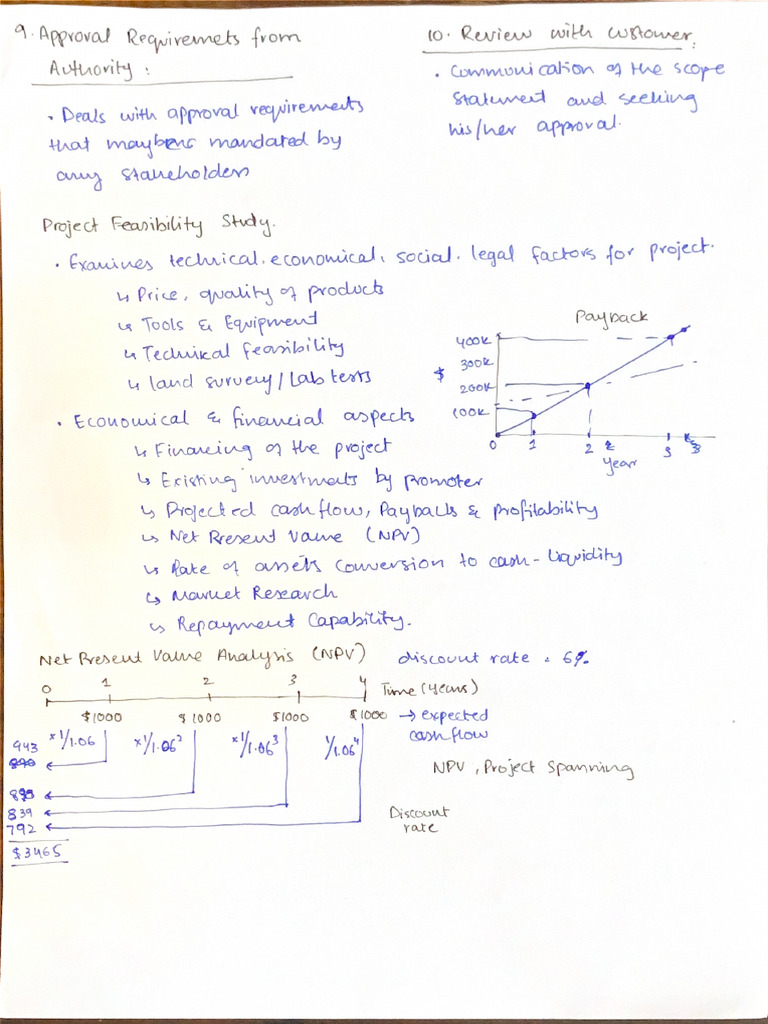 9. Approval Requiremets from
Authority :
• Deals with approval requirements
that may be mandated by
any stakeholders
10. Review with customer:
• Communication of the scope
statement and seeking
his/her approval.
Project Feasibility Study.
• Examines technical, economical, social, legal factors for project.
↳ Price, quality of products
↳ Tools & Equipment
↳ Technical feasibility
↳ land survey/Lab tests
Payback
400k
300k
$ 200k
100k
0 1 2 3
Year
• Economical & financial aspects
↳ Financing of the project
↳ Existing investments by promoter
↳ Projected cashflow, Paybacks & Profitability
↳ Net Present Value (NPV)
↳ Rate of assets conversion to cash - liquidity
↳ Market Research
↳ Repayment Capability.
Net Present Value Analysis (NPV) discount rate = 6%
0 1 2 3 4 Time (years)
$1000 $1000 $1000 $1000 → expected
cashflow
×1/1.06 ×1/1.06² ×1/1.06³ 1/1.06⁴
943
NPV, Project Spanning
839
792
$3465
Discount
rate